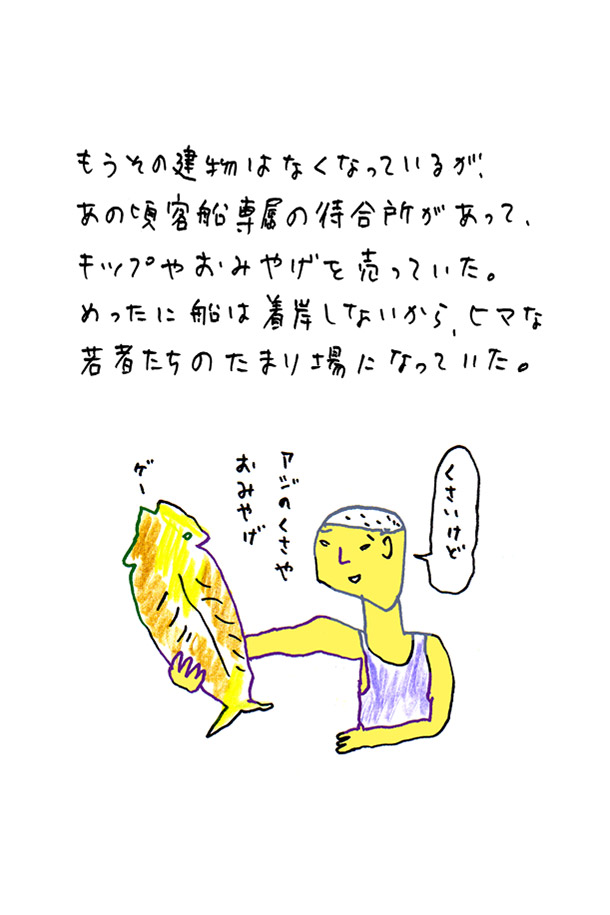 もうその建物はなくなっているが、
あの頃客船専属の待合所があって、
キップやおみやげを売っていた。
めったに船は着岸しないから、ヒマな
若者たちのたまり場になっていた。
くさいけど
アジのくさや
おみやげ
ゲー